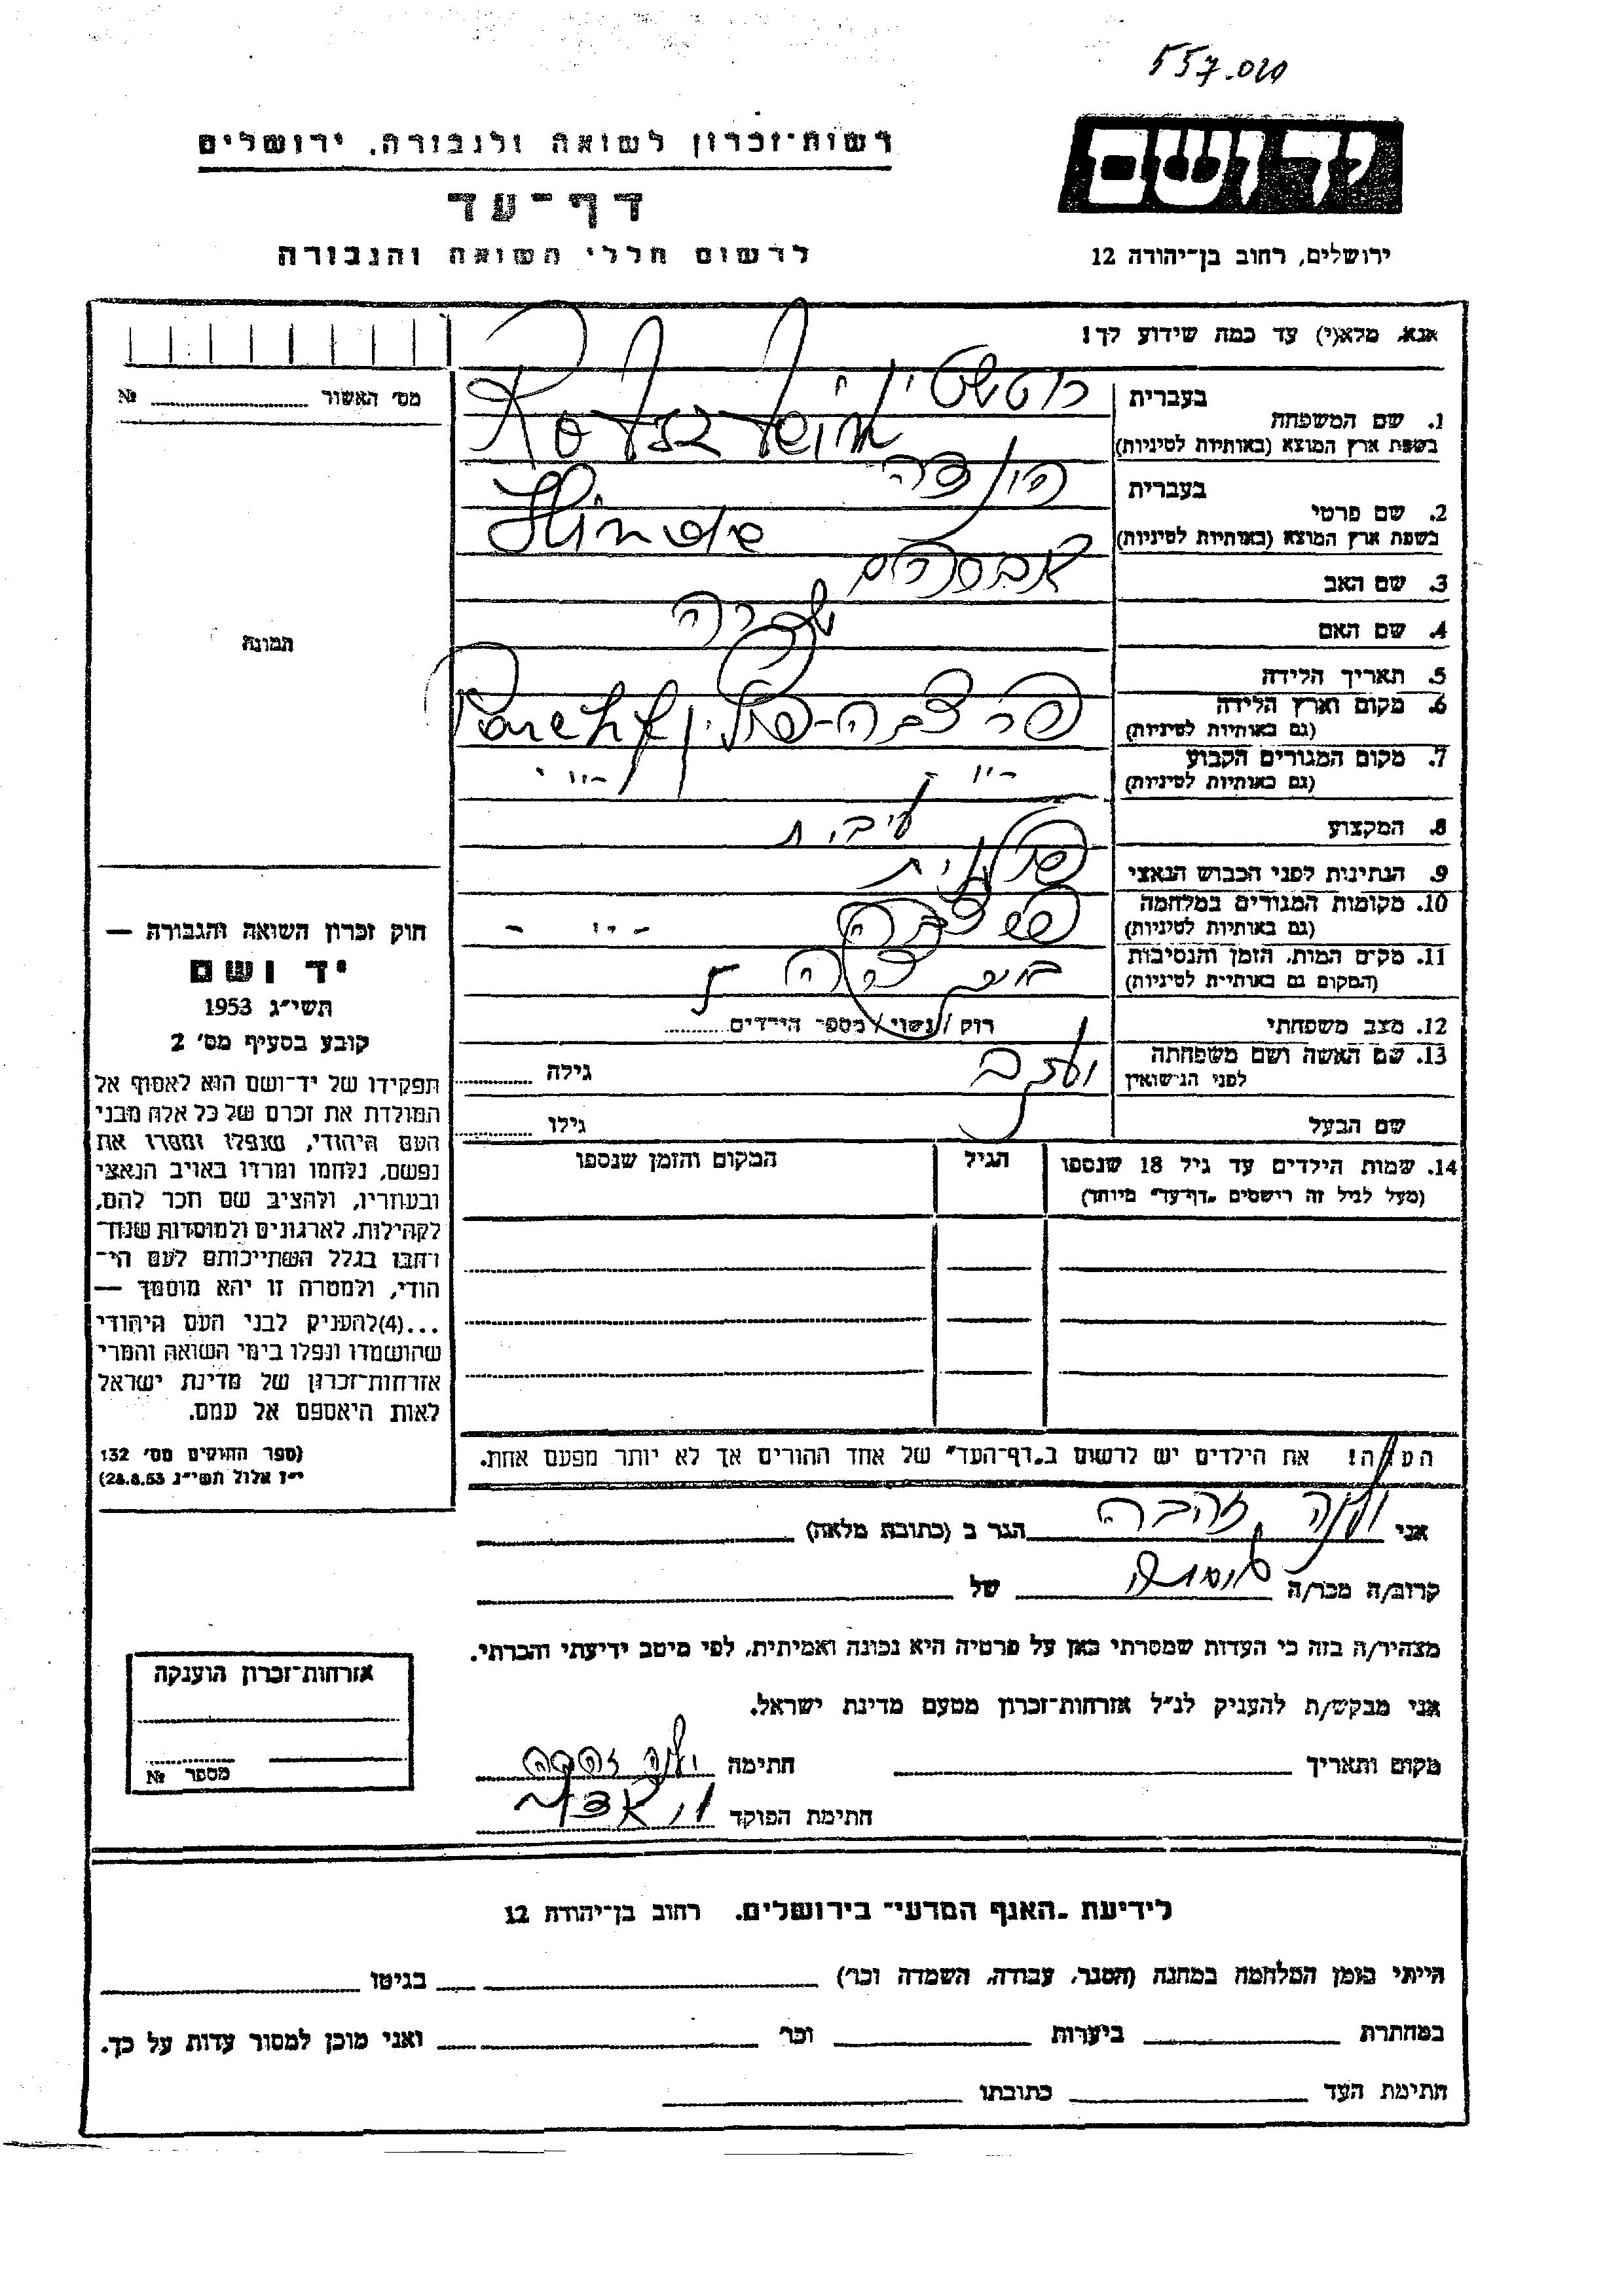 557.020
רשות־זכרון לשואה ולגבורה, ירושלים
יד ושם
דף־עד
לרשום חללי השואה והגבורה
ירושלים, רחוב בן־יהודה 12
אנא, מלא(י) עד כמה שידוע לך!
מס׳ האשור №
1. שם המשפחה בעברית
בשפת ארץ המוצא (באותיות לטיניות)
2. שם פרטי בעברית הינדה
בשפת ארץ המוצא (באותיות לטיניות) Hinda
3. שם האב אברהם
4. שם האם שרה
תמונה
5. תאריך הלידה
6. מקום וארץ הלידה
(גם באותיות לטיניות)
7. מקום המגורים הקבוע -״-
(גם באותיות לטיניות) -״-
8. המקצוע
9. הנתינות לפני הכבוש הנאצי פולנית
10. מקומות המגורים במלחמה
(גם באותיות לטיניות) -״-
11. מקום המות, הזמן והנסיבות
(המקום גם באותיות לטיניות)
12. מצב משפחתי רוק / נשוי / מספר הילדים
13. שם האשה ושם משפחתה
לפני הנישואין גילה
שם הבעל גילו
14. שמות הילדים עד גיל 18 שנספו הגיל המקום והזמן שנספו
(מעל לגיל זה רושמים „דף־עד״ מיוחד)
חוק זכרון השואה והגבורה —
יד ושם
תשי״ג 1953
קובע בסעיף מס׳ 2
תפקידו של יד־ושם הוא לאסוף אל
המולדת את זכרם של כל אלה מבני
העם היהודי, שנפלו ומסרו את
נפשם, נלחמו ומרדו באויב הנאצי
ובעוזריו, ולהציב שם וזכר להם,
לקהילות, לארגונים ולמוסדות שנח־
רבו בגלל השתייכותם לעם הי־
הודי, ולמטרה זו יהא מוסמך —
...(4)להעניק לבני העם היהודי
שהושמדו ונפלו בימי השואה והמרי
אזרחות־זכרון של מדינת ישראל
לאות היאספם אל עמם.
(ספר החוקים מס׳ 132
י״ז אלול תשי״ג 28.8.53)
הערה! את הילדים יש לרשום ב„דף־העד״ של אחד ההורים אך לא יותר מפעם אחת.
אני זהבה הגר ב (כתובת מלאה)
קרוב/ה מכר/ה של
מצהיר/ה בזה כי העדות שמסרתי כאן על פרטיה היא נכונה ואמיתית, לפי מיטב ידיעתי והכרתי.
אני מבקש/ת להעניק לנ״ל אזרחות־זכרון מטעם מדינת ישראל.
מקום ותאריך חתימה זהבה
חתימת הפוקד
אזרחות־זכרון הוענקה
מספר №
לידיעת „האגף המדעי״ בירושלים, רחוב בן־יהודה 12
הייתי בזמן המלחמה במחנה (הסגר, עבודה, השמדה וכו׳) בגיטו
במחתרת ביערות וכו׳ ואני מוכן למסור עדות על כך.
חתימת העד כתובתו